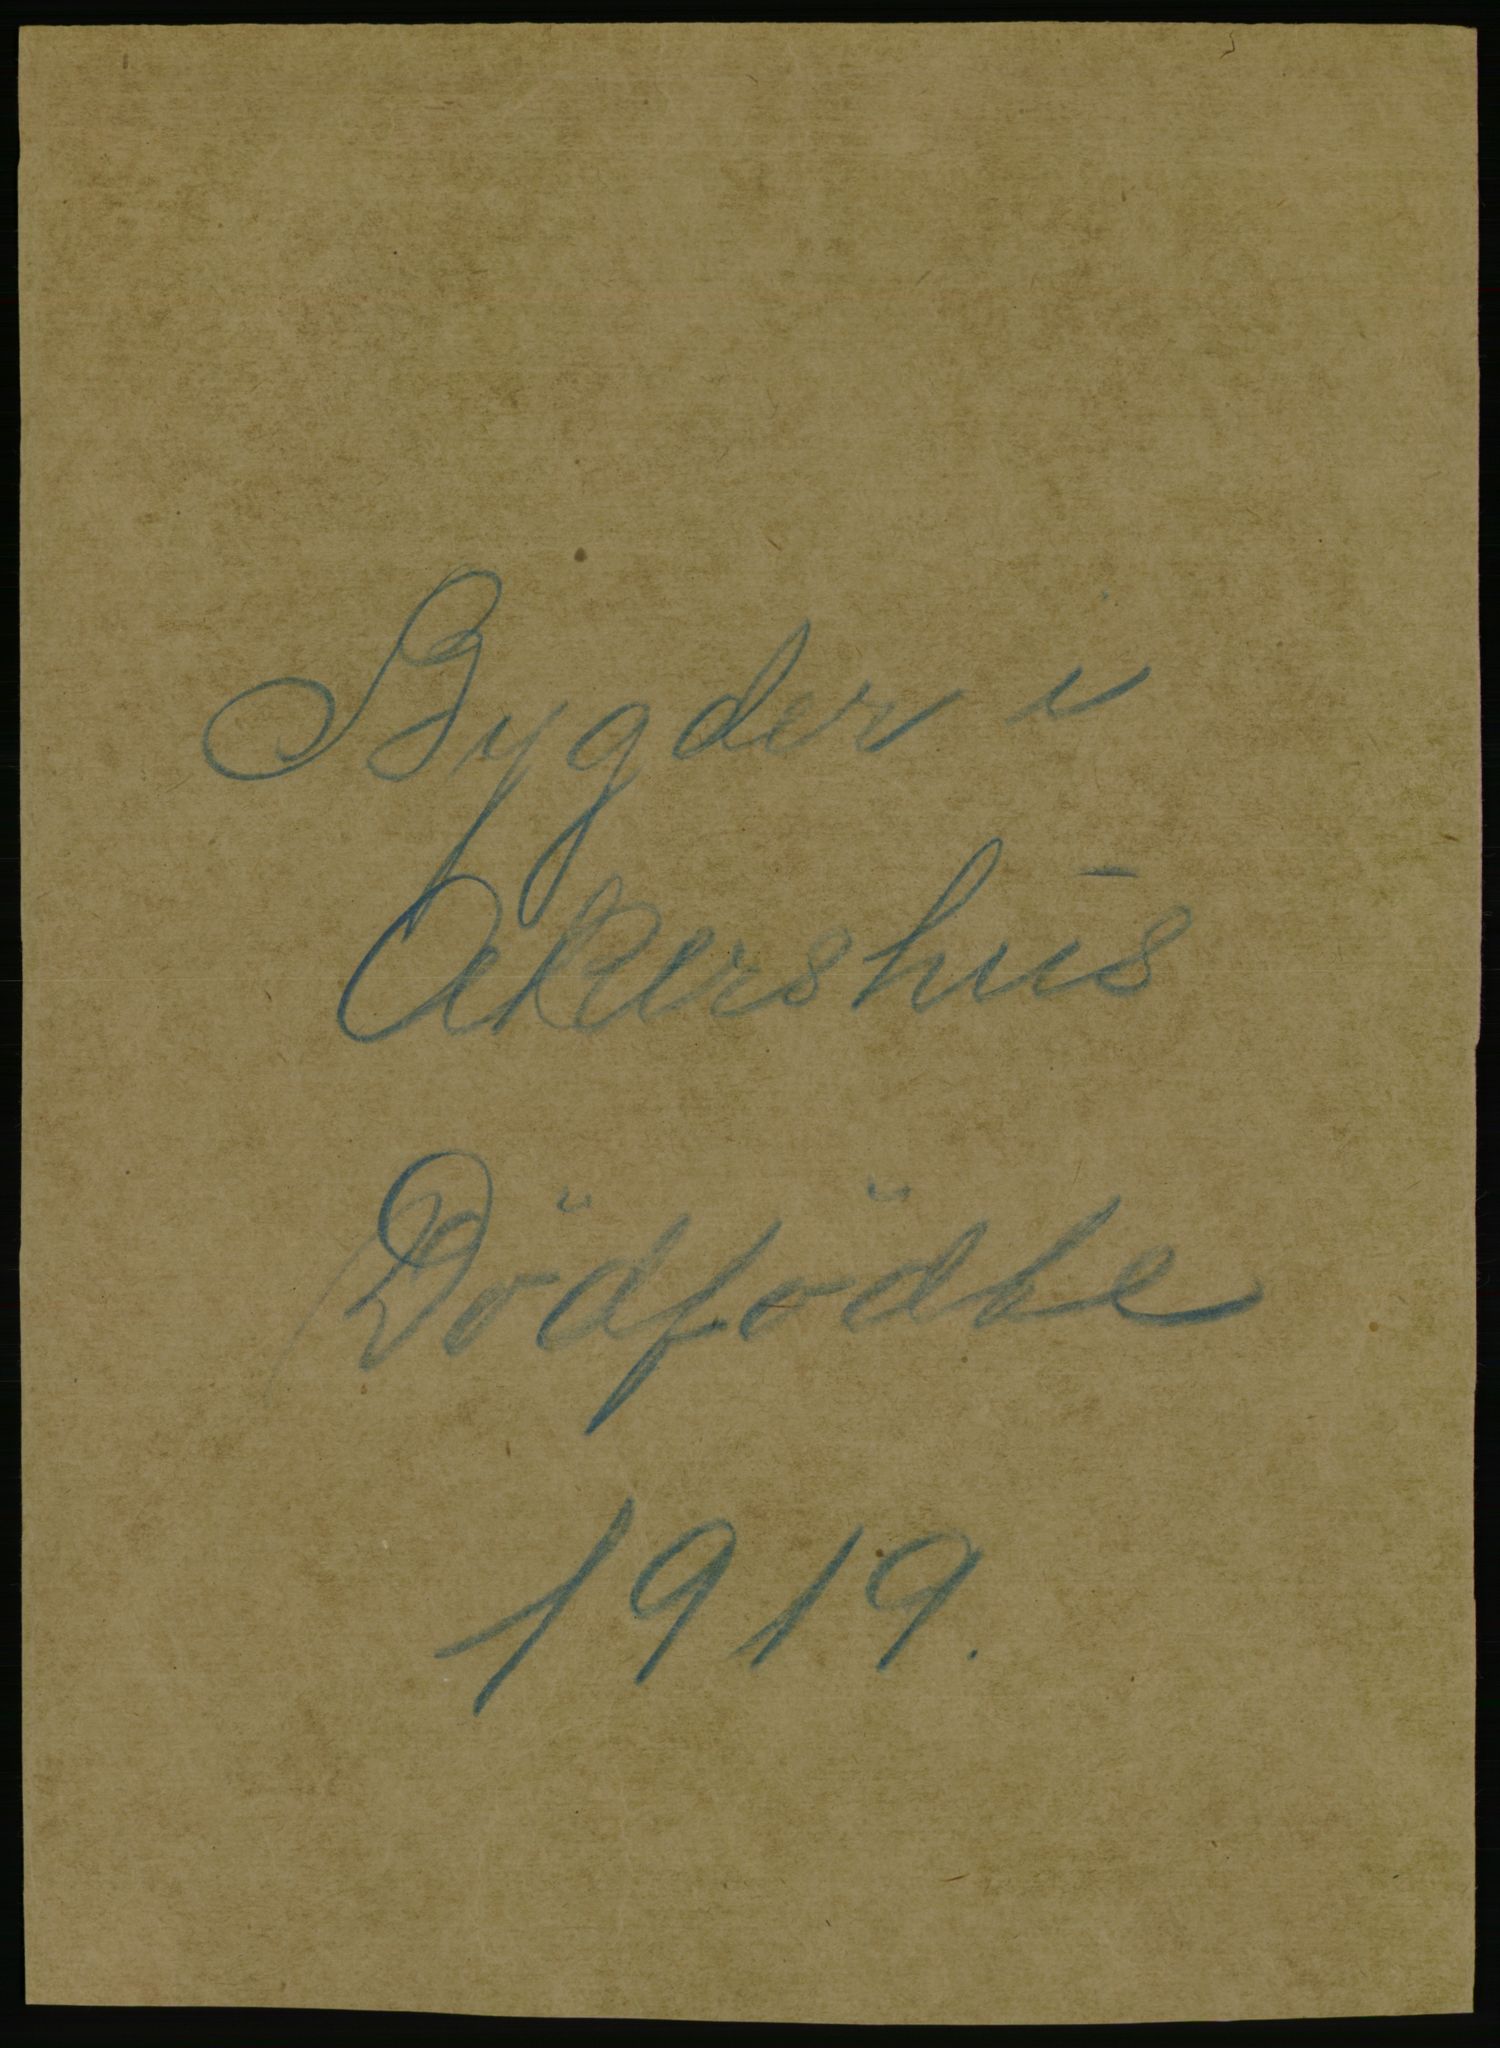 Bygder i
Akershus
Dödfödte
1919.